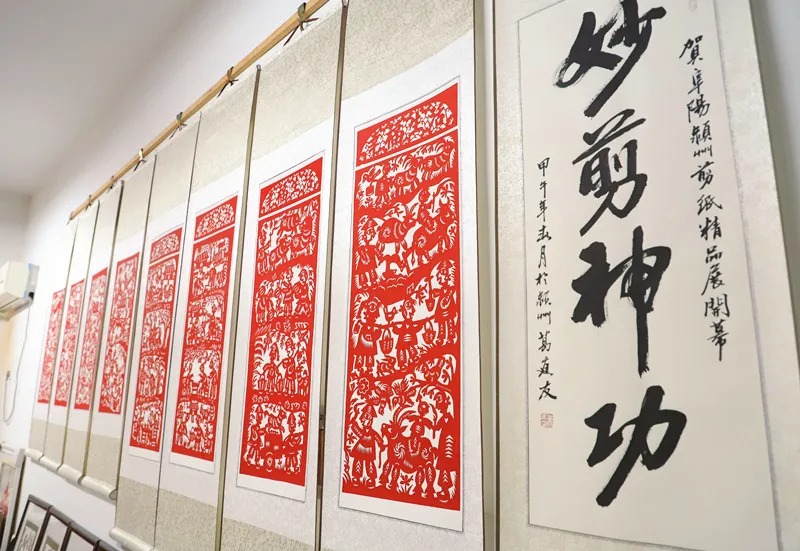 賀阜陽潁州剪紙精品展開幕
妙剪神功
甲午年秋月於潁州葛庭友